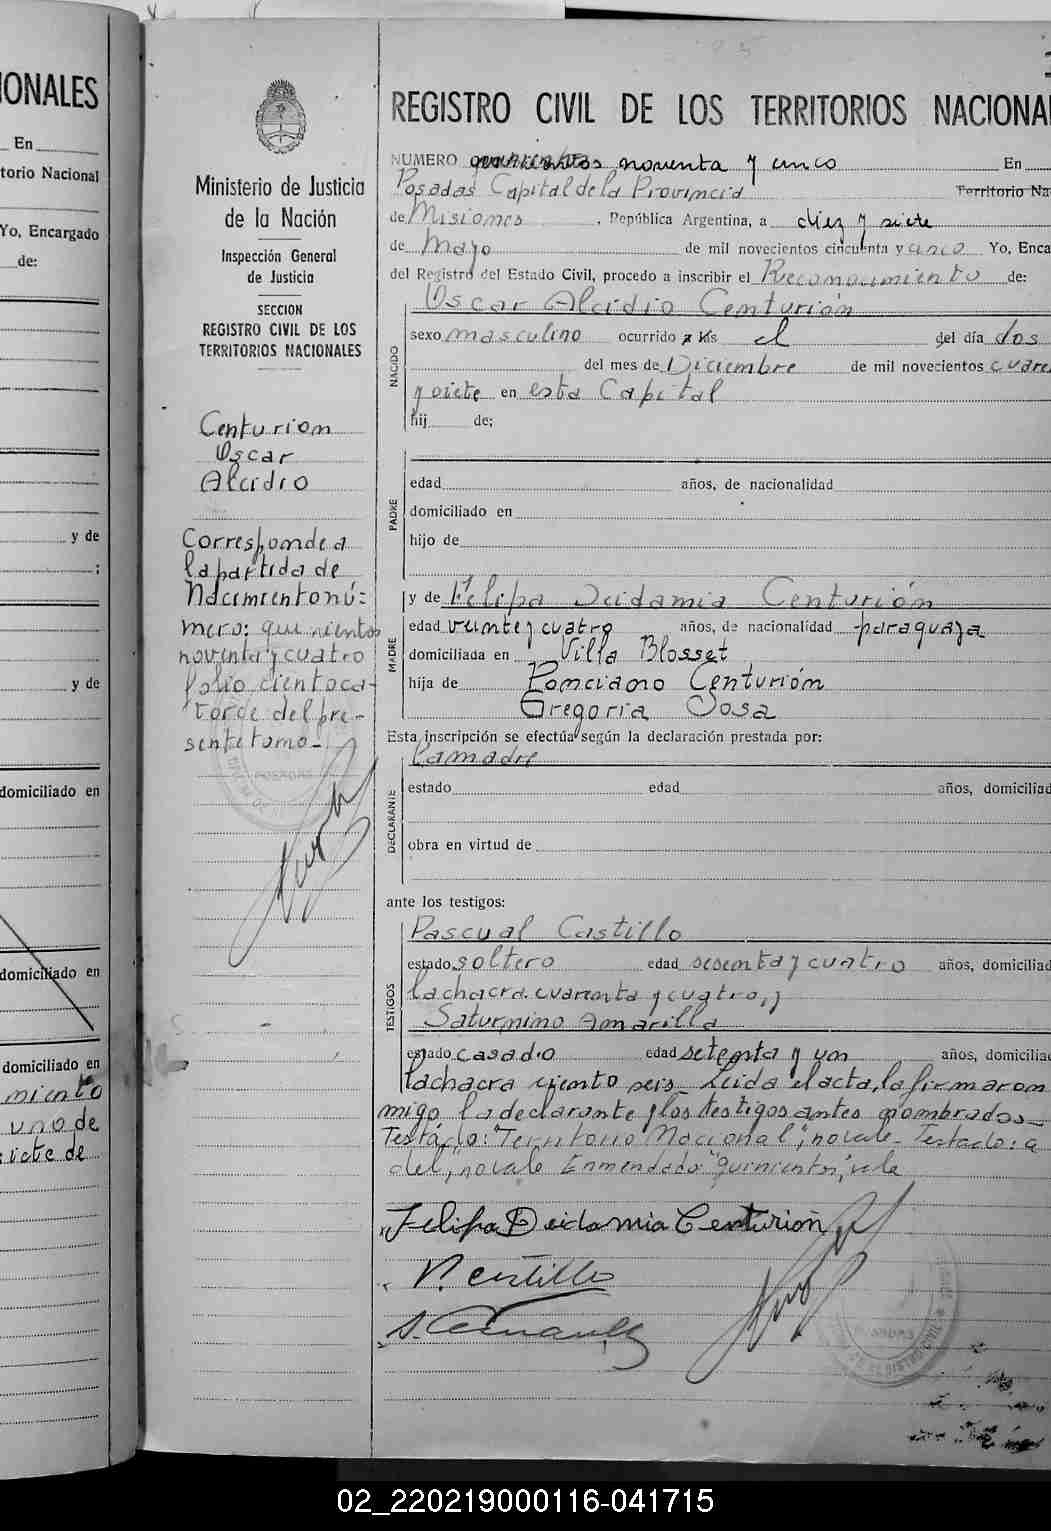 IONALES
En
torio Nacional
Yo, Encargado
de:
y de
;
y de
domiciliado en
domiciliado en
domiciliado en
miento
uno de
siete de
Ministerio de Justicia
de la Nación
Inspección General
de Justicia
SECCION
REGISTRO CIVIL DE LOS
TERRITORIOS NACIONALES
Centurion
Oscar
Alcidio
Corresponde a
la partida de
Nacimiento nú=
mero: quinientos
noventa y cuatro
folio ciento ca-
torce del pre-
sente tomo.-
POSADAS
REGISTRO CIVIL DE LOS TERRITORIOS NACIONA
NUMERO quinientos noventa y cinco En
Posadas Capital de la Provincia Territorio Na
de Misiones, República Argentina, a diez y siete
de Mayo de mil novecientos cincuenta y cinco Yo, Enca
del Registro del Estado Civil, procedo a inscribir el Reconocimiento de:
Oscar Alcidio Centurión
NACIDO
sexo masculino ocurrido a las el del día dos
del mes de Diciembre de mil novecientos cuare
y siete en esta Capital
hij de;
PADRE
edad años, de nacionalidad
domiciliado en
hijo de
MADRE
y de Felipa Deidamia Centurión
edad veinte y cuatro años, de nacionalidad paraguaya
domiciliada en Villa Blosset
hija de Ponciano Centurión
Gregoria Sosa
Esta inscripción se efectúa según la declaración prestada por:
La madre
DECLARANTE
estado edad años, domiciliad
obra en virtud de
ante los testigos:
TESTIGOS
Pascual Castillo
estado soltero edad sesenta y cuatro años, domiciliad
la chacra cuarenta y cuatro, y
Saturnino Amarilla
estado casado edad setenta y un años, domicilia
la chacra ciento seis. Leida el acta, la firmaron
migo la declarante y los testigos antes nombrados.-
Testado: "Territorio Nacional", no vale.- Testado: a
del, "no vale Enmendado: "quinientos", vale
Felipa Deidamia Centurión
P. Castillo
02_220219000116-041715